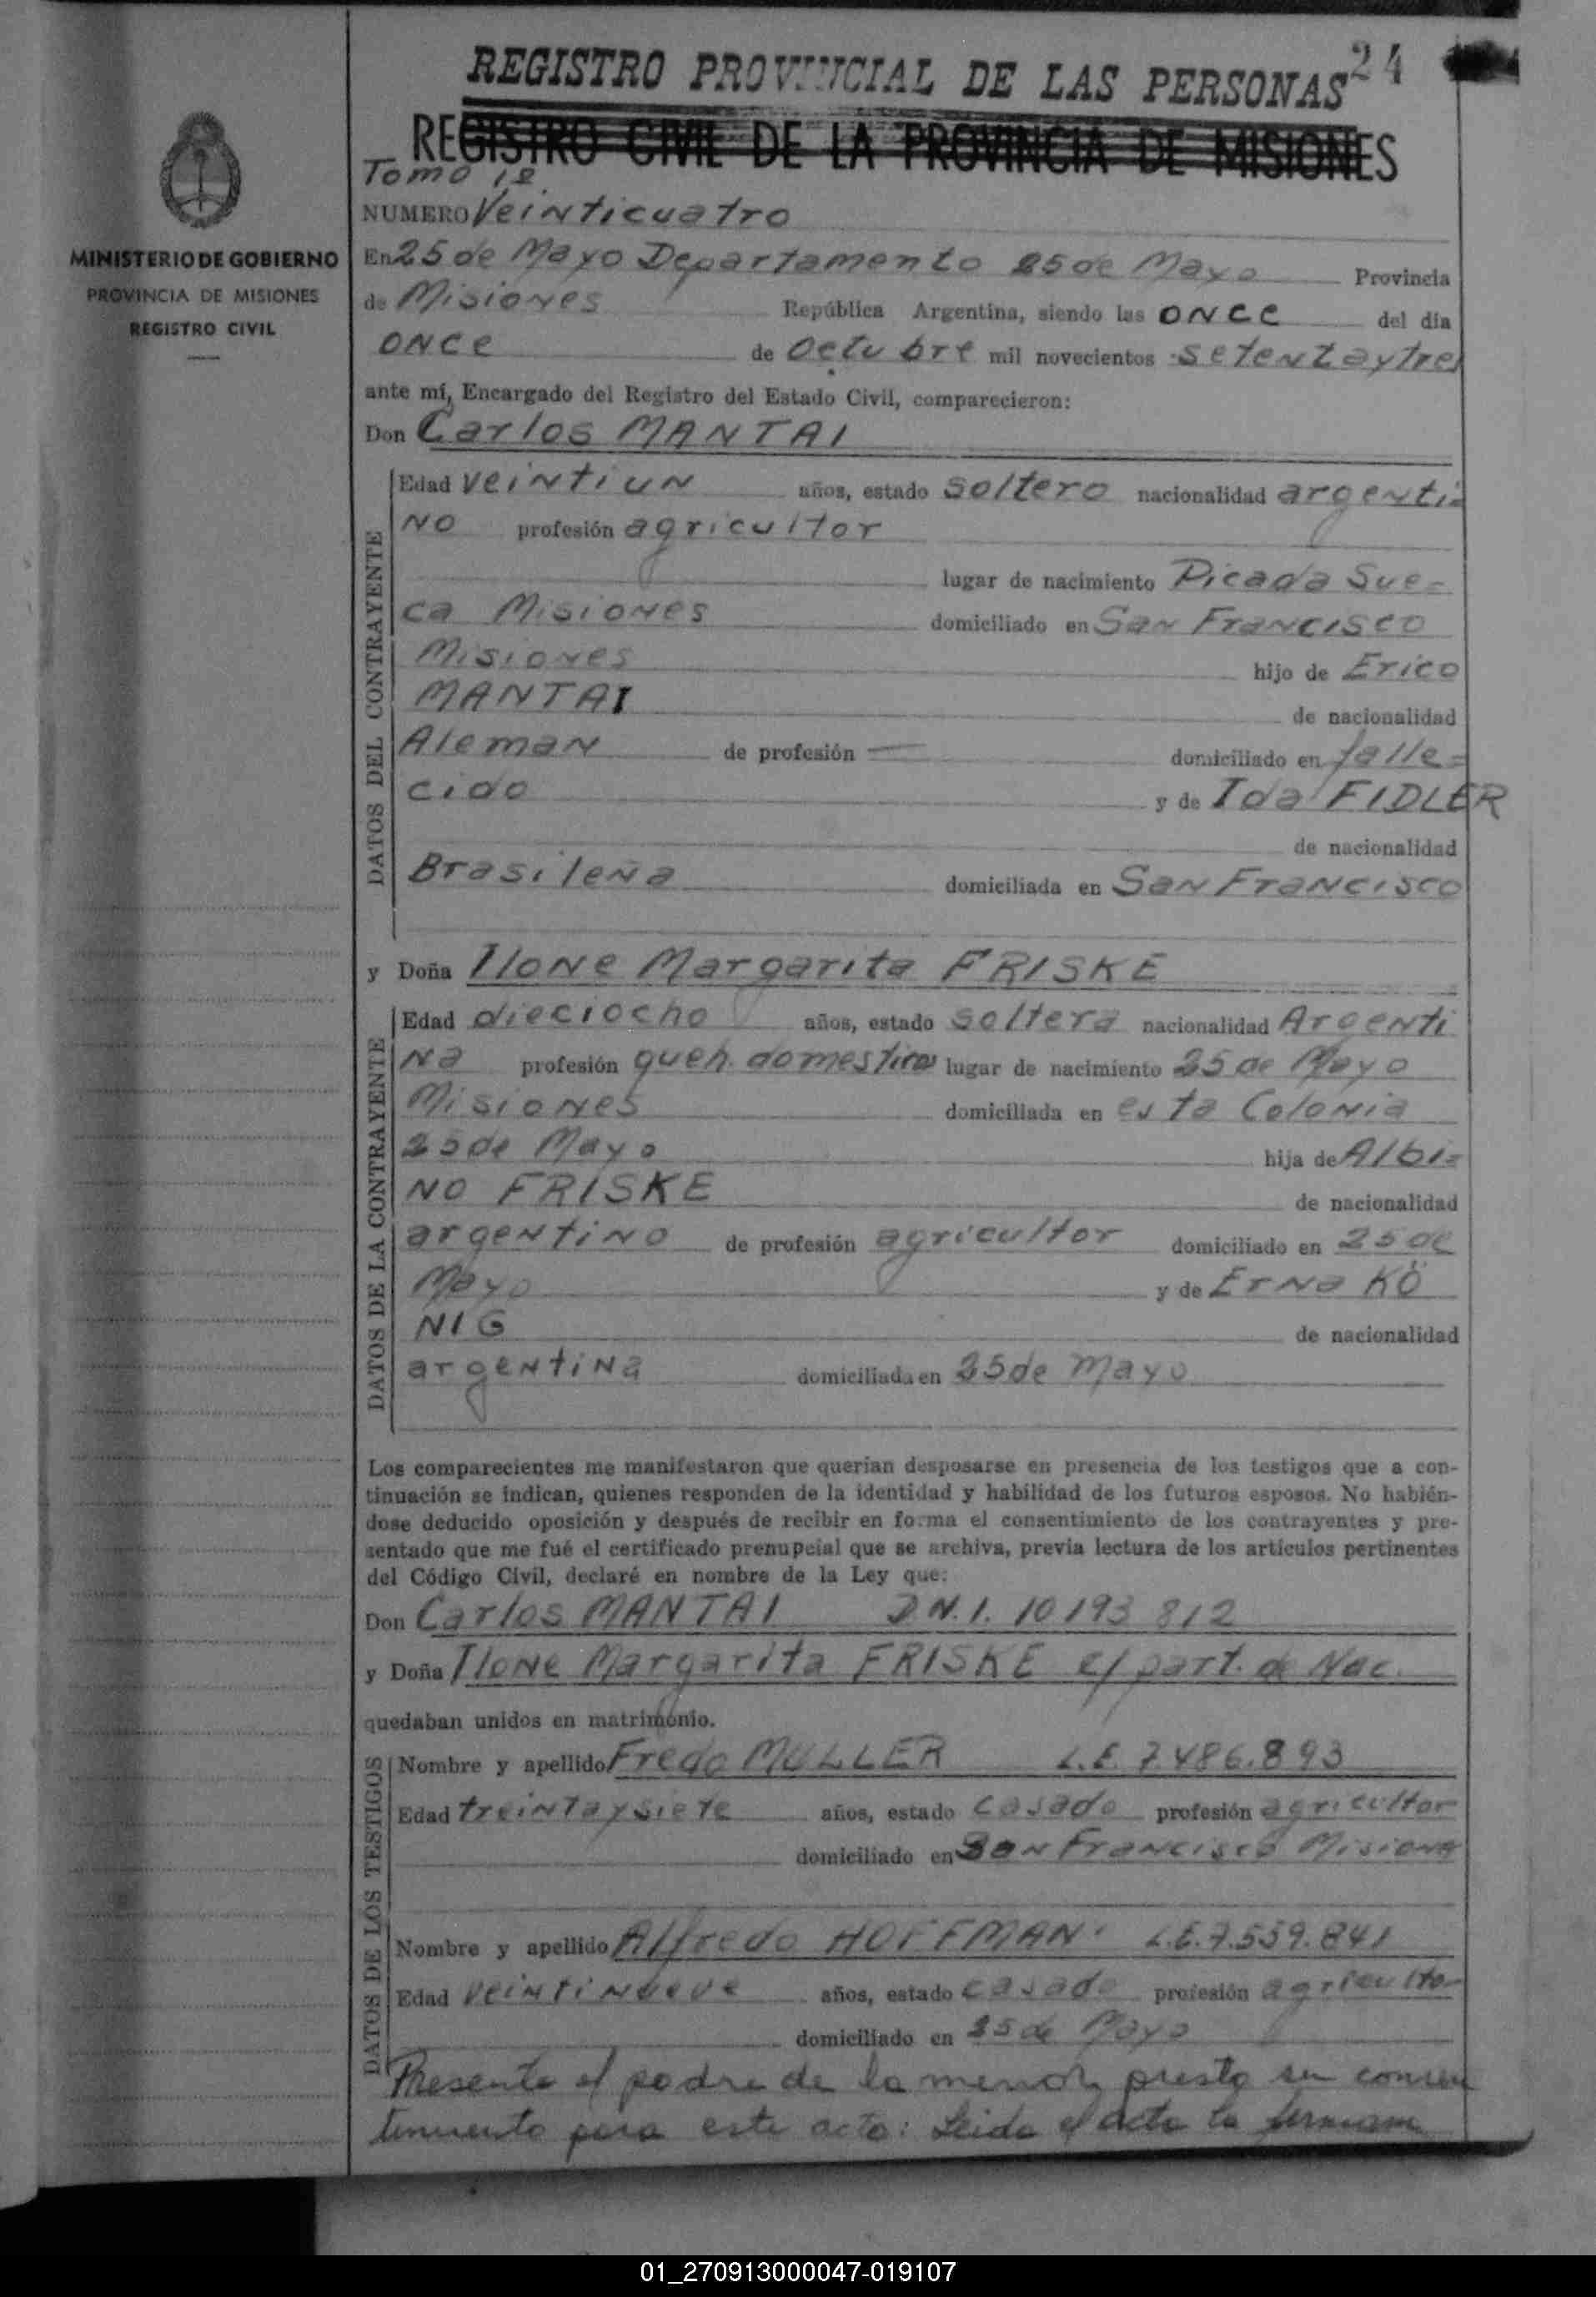 REGISTRO PROVINCIAL DE LAS PERSONAS 24
REGISTRO CIVIL DE LA PROVINCIA DE MISIONES
Tomo 1º
MINISTERIO DE GOBIERNO
PROVINCIA DE MISIONES
REGISTRO CIVIL
NUMERO Veinticuatro
En 25 de Mayo Departamento 25 de Mayo Provincia
de Misiones República Argentina, siendo las once del día
once de Octubre mil novecientos setenta y tres
ante mí, Encargado del Registro del Estado Civil, comparecieron:
Don Carlos MANTAI
DATOS DEL CONTRAYENTE
Edad veintiun años, estado soltero nacionalidad argenti=
no profesión agricultor
lugar de nacimiento Picada Sue=
ca Misiones domiciliado en San Francisco
Misiones hijo de Erico
MANTAI de nacionalidad
Aleman de profesión — domiciliado en falle=
cido y de Ida FIDLER
de nacionalidad
Brasileña domiciliada en San Francisco
y Doña Ilone Margarita FRISKE
DATOS DE LA CONTRAYENTE
Edad dieciocho años, estado soltera nacionalidad Argenti
na profesión queh. domesticos lugar de nacimiento 25 de Mayo
Misiones domiciliada en esta Colonia
25 de Mayo hija de Albi=
no FRISKE de nacionalidad
argentino de profesión agricultor domiciliado en 25 de
Mayo y de Erna KÖ
NIG de nacionalidad
argentina domiciliada en 25 de Mayo
Los comparecientes me manifestaron que querían desposarse en presencia de los testigos que a con-
tinuación se indican, quienes responden de la identidad y habilidad de los futuros esposos. No habién-
dose deducido oposición y después de recibir en forma el consentimiento de los contrayentes y pre-
sentado que me fué el certificado prenupcial que se archiva, previa lectura de los artículos pertinentes
del Código Civil, declaré en nombre de la Ley que:
Don Carlos MANTAI D.N.I. 10193 812
y Doña Ilone Margarita FRISKE c/ part. de Nac.
quedaban unidos en matrimonio.
DATOS DE LOS TESTIGOS
Nombre y apellido Fredo MULLER L.E. 7.486.893
Edad treinta y siete años, estado casado profesión agricultor
domiciliado en San Francisco Misiones
Nombre y apellido Alfredo HOFFMAN L.E. 7.559.841
Edad veintinueve años, estado casado profesión agricultor
domiciliado en 25 de Mayo
Presente el padre de la menor, presta su consen
timiento para este acto: Leida el acta la firman
01_270913000047-019107